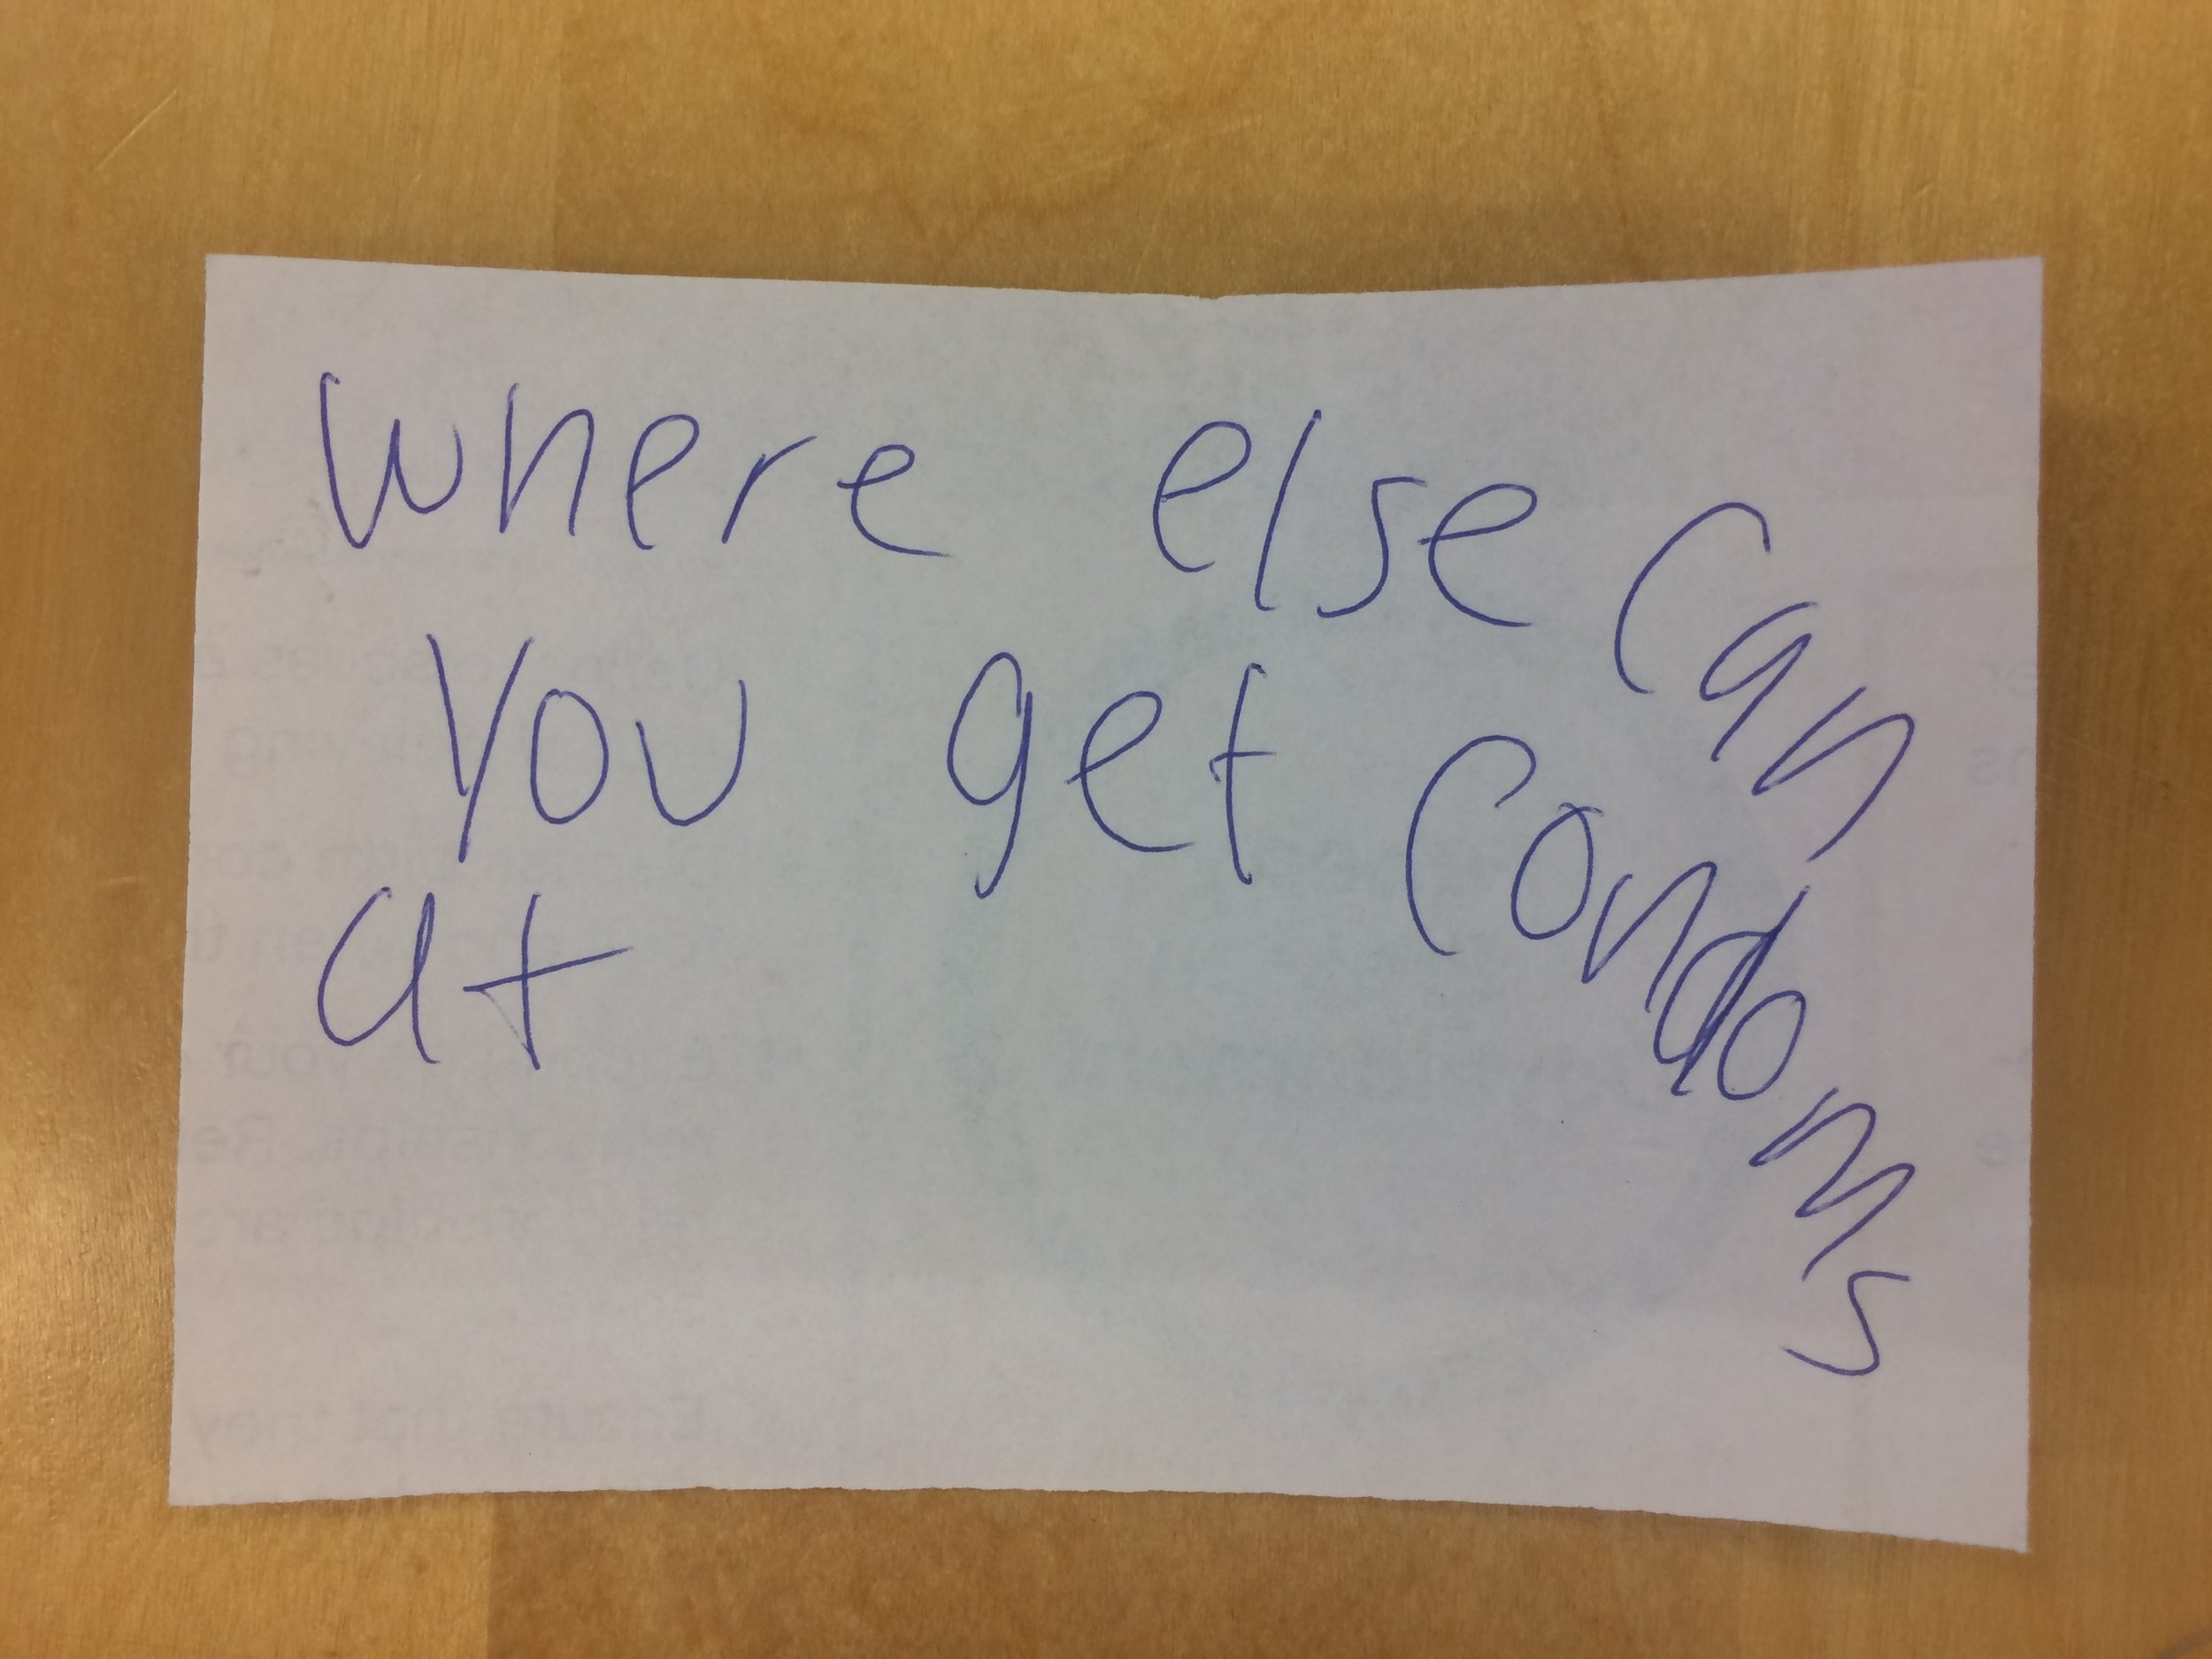 where else can
you get condoms
at